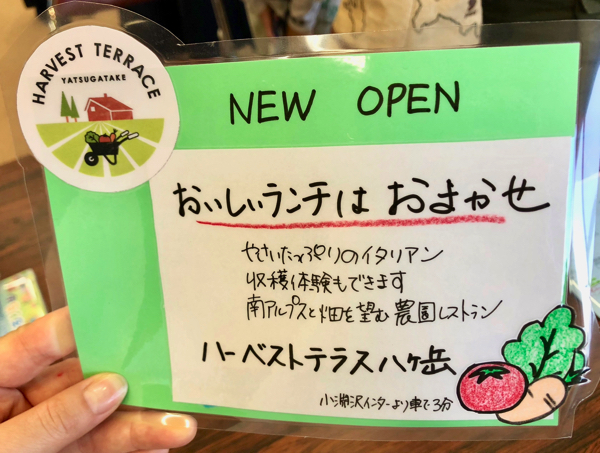 HARVEST TERRACE
YATSUGATAKE
NEW OPEN
おいしいランチは おまかせ
やさいたっぷりのイタリアン
収穫体験もできます
南アルプスと畑を望む農園レストラン
ハーベストテラス八ヶ岳
小淵沢インターより車で3分